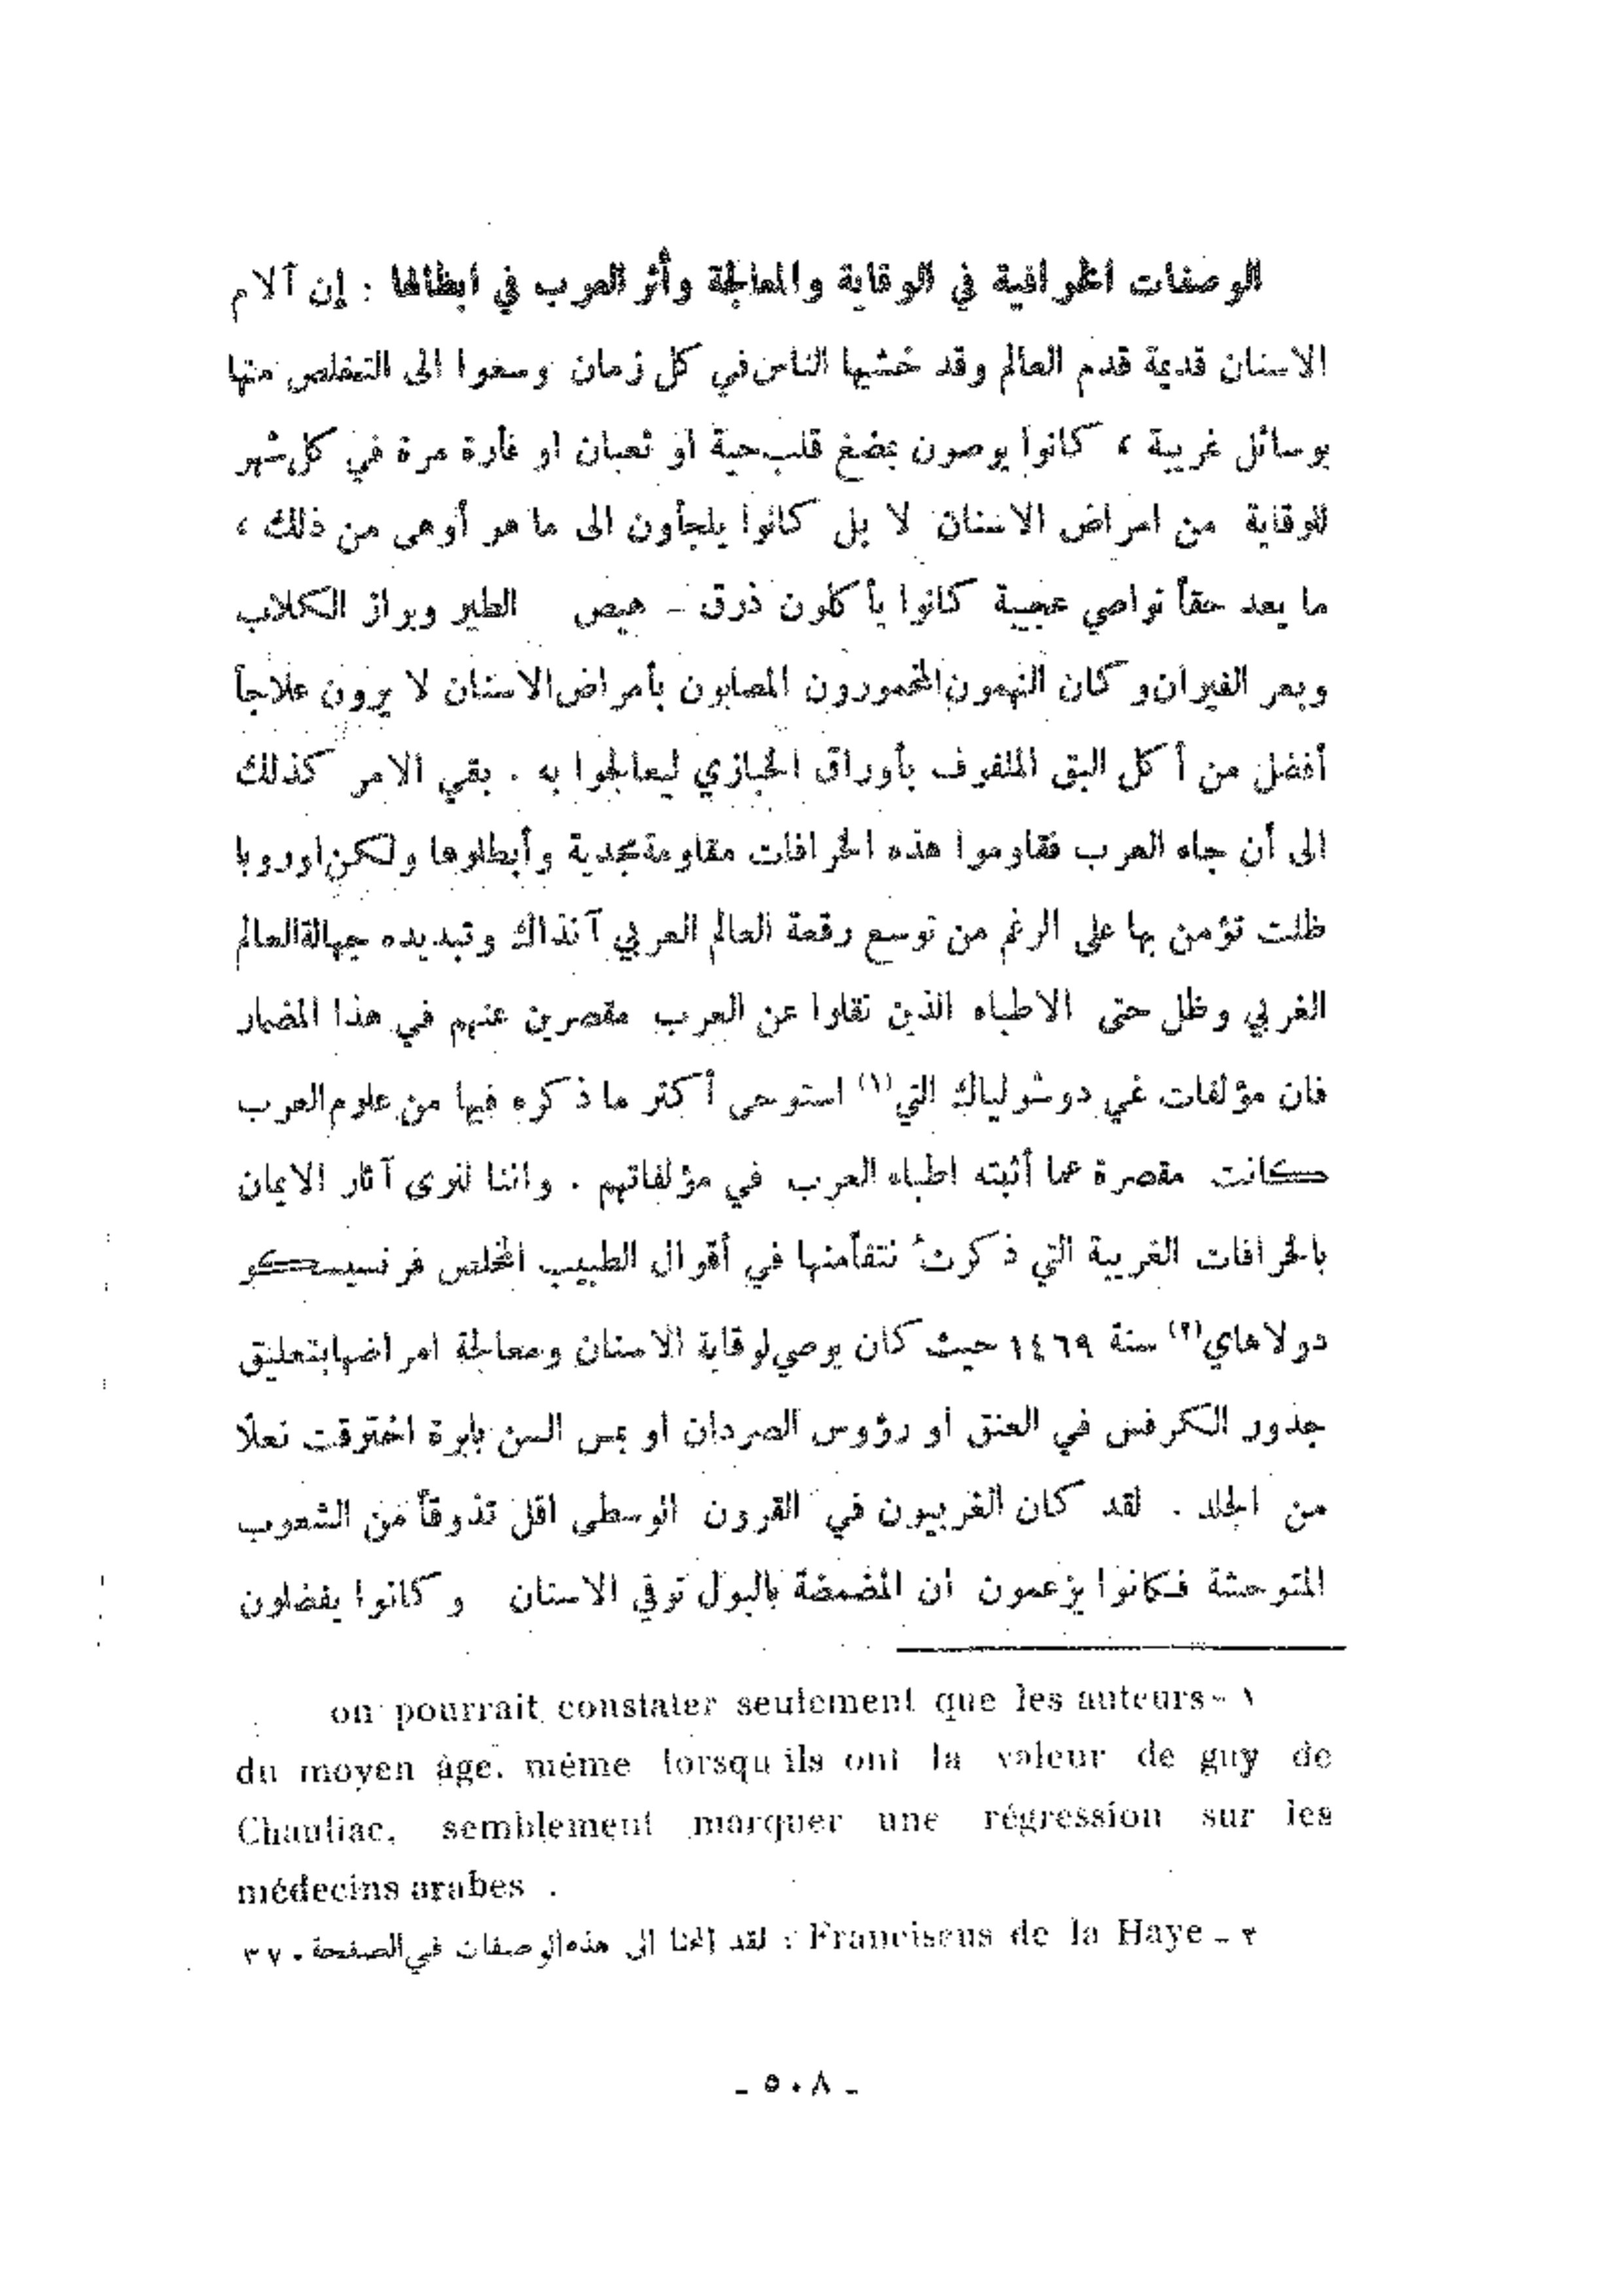 الوصفات الخرافية في الوقاية والمعالجة وأثر العرب في ابطالها : إن آلام
الاسنان قديمة قدم العالم وقد خشيها الناس في كل زمان وسعوا الى التخلص منها
بوسائل غريبة ، كانوا يوصون بمضغ قلب حية او ثعبان او فأرة مرة في كل شهر
للوقاية من امراض الاسنان لا بل كانوا يلجأون الى ما هو أوهى من ذلك ،
ما يعد حقاً نواصي عجيبة كانوا يأكلون ذرق - هيص الطير وبراز الكلاب
وبعر الفيران وكان النهمون المخمورون المصابون بأمراض الاسنان لا يرون علاجاً
أفضل من أكل البق الملفوف بأوراق الخبازي ليعالجوا به . بقي الامر كذلك
الى أن جاء العرب فقاوموا هذه الخرافات مقاومة مجدية وأبطلوها ولكن اوروبا
ظلت تؤمن بها على الرغم من توسع رقعة العالم العربي آنذاك وتبديده جهالة العالم
الغربي وظل حتى الاطباء الذين نقلوا عن العرب مقصرين عنهم في هذا المضمار
فان مؤلفات غي دوشولياك التي (١) استوحى أكثر ما ذكره فيها من علوم العرب
كانت مقصرة عما أثبته اطباء العرب في مؤلفاتهم . واننا لنرى آثار الايمان
بالخرافات الغريبة التي ذكرتُ نتفاً منها في أقوال الطبيب المخلص فرنسيسكو
دولاهاي (٢) سنة ١٤٦٩ حيث كان يوصي لوقاية الاسنان ومعالجة امراضها بتعليق
جذور الكرفس في العنق او رؤوس الصردان او بمس السن بابرة اخترقت نعلًا
من الجلد . لقد كان الغربيون في القرون الوسطى اقل تذوقاً من الشعوب
المتوحشة فكانوا يزعمون ان المضمضة بالبول توقي الاسنان وكانوا يفضلون
١ - on pourrait constater seulement que les auteurs
du moyen âge. même lorsqu ils ont la valeur de guy de
Chauliac, semblement marquer une régression sur les
médecins arabes .
٢ - Franciscus de la Haye : لقد المحنا الى هذه الوصفات في الصفحة ٣٧٠
- ٥٠٨ -